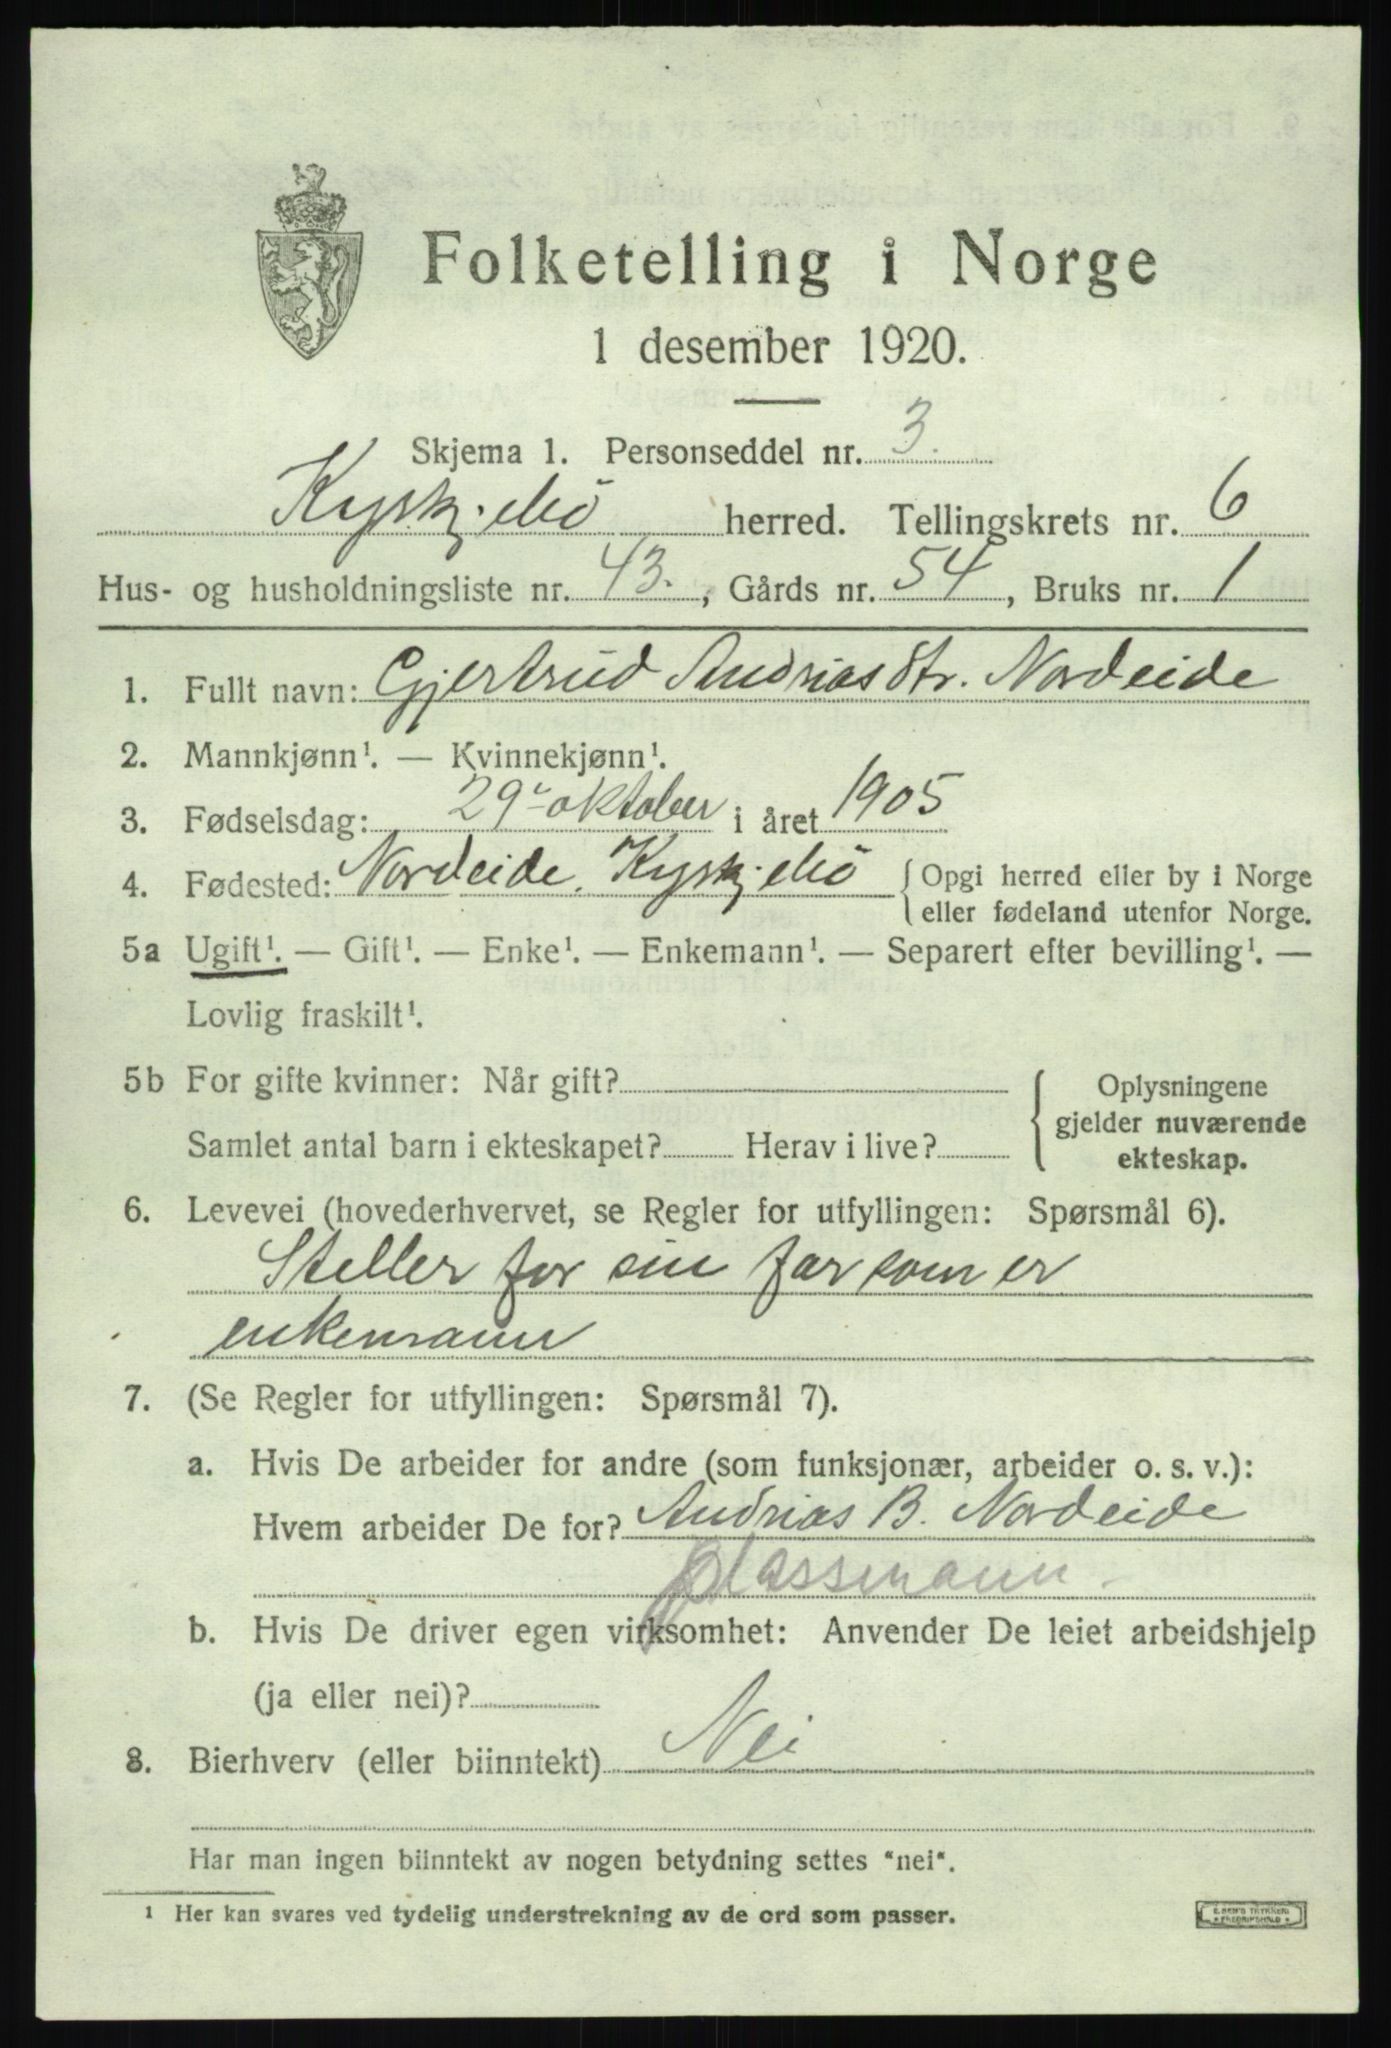 Folketelling i Norge
1 desember 1920.
Skjema 1. Personseddel nr. 3.
Kyrkjebö herred. Tellingskrets nr. 6
Hus- og husholdningsliste nr. 43., Gårds nr. 54, Bruks nr. 1
1. Fullt navn: Gjertrud Andrias dtr. Nordeide
2. Mannkjønn¹. — Kvinnekjønn¹.
3. Fødselsdag: 29 oktober i året 1905
4. Fødested: Nordeide, Kyrkjebö { Opgi herred eller by i Norge
eller fødeland utenfor Norge.
5a Ugift¹. — Gift¹. — Enke¹. — Enkemann¹. — Separert efter bevilling¹. —
Lovlig fraskilt¹.
5b For gifte kvinner: Når gift?
Samlet antal barn i ekteskapet? Herav i live?
{ Oplysningene
gjelder nuværende
ekteskap.
6. Levevei (hovederhvervet, se Regler for utfyllingen: Spørsmål 6).
Steller for sin far som er
enkemann
7. (Se Regler for utfyllingen: Spørsmål 7).
a. Hvis De arbeider for andre (som funksjonær, arbeider o. s. v.):
Hvem arbeider De for? Andrias B. Nordeide
plassmann.
b. Hvis De driver egen virksomhet: Anvender De leiet arbeidshjelp
(ja eller nei)?
8. Bierhverv (eller biinntekt) Nei
Har man ingen biinntekt av nogen betydning settes "nei".
¹ Her kan svares ved tydelig understrekning av de ord som passer.